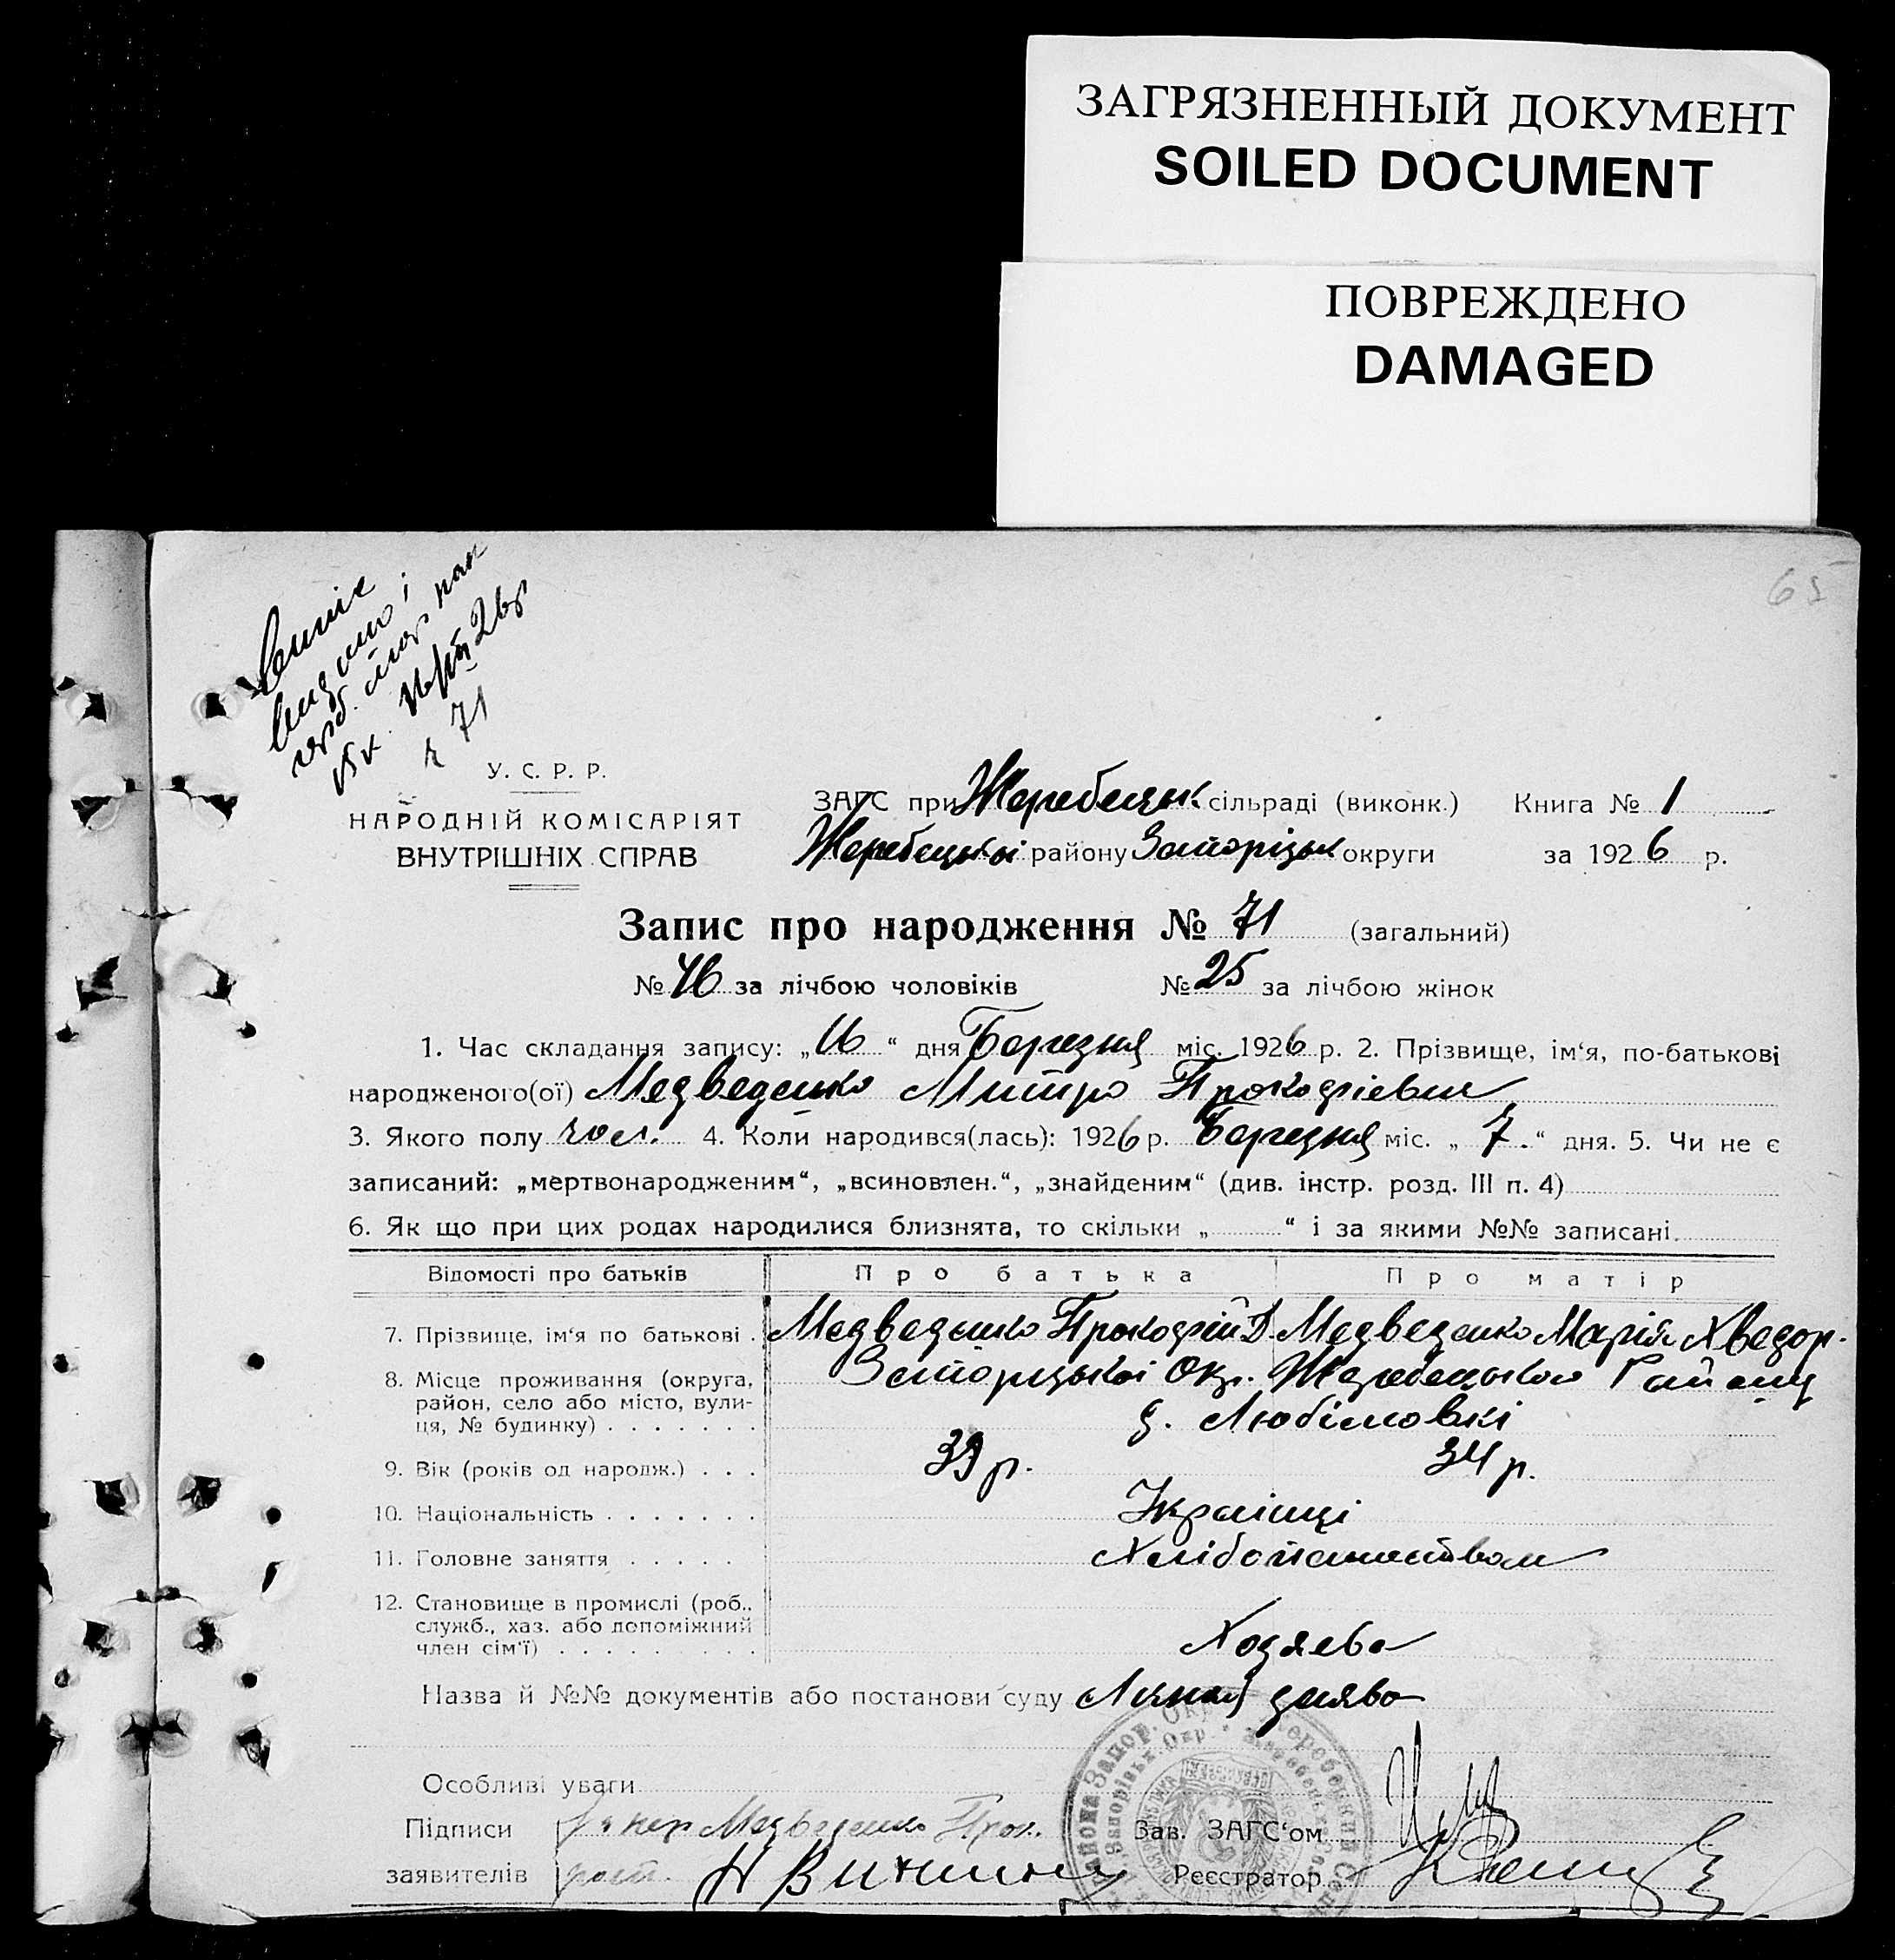 ЗАГРЯЗНЕННЫЙ ДОКУМЕНТ
SOILED DOCUMENT
ПОВРЕЖДЕНО
DAMAGED
65
71
У. С. Р. Р.
НАРОДНІЙ КОМІСАРІЯТ
ВНУТРІШНІХ СПРАВ
ЗАГС при Жеребецьк. сільраді (виконк.) Книга № 1
Жеребецької району Запорізьк округи за 1926 р.
Запис про народження № 71 (загальний)
№ 46 за лічбою чоловіків № 25 за лічбою жінок
1. Час складання запису: „16“ дня Березня міс. 1926 р. 2. Прізвище, ім‘я, по-батькові
народженого(ої) Медведенко Митро Прокофієвич
3. Якого полу чол. 4. Коли народився(лась): 1926 р. Березня міс. „7.“ дня. 5. Чи не є
записаний: „мертвонародженим“, „всиновлен.“, „знайденим“ (див. інстр. розд. III п. 4)
6. Як що при цих родах народилися близнята, то скільки „ “ і за якими №№ записані
Відомості про батьків Про батька Про матір
7. Прізвище, ім‘я по батькові . Медведенко Прокофій Д. Медведенко Марія Хведор.
8. Місце проживання (округа, Запорізької Окр. Жеребецького Району
район, село або місто, вули-
ця, № будинку) . . . . . . . д. Любімовкі
9. Вік (років од народж.) . . . 39 р. 34 р.
10. Національність . . . . . . . Українці
11. Головне заняття . . . . . Хлібопашеством
12. Становище в промислі (роб.,
служб., хаз. або допоміжний
член сім‘ї) . . . . . . . . . Хозяева
Назва й №№ документів або постанови суду Лична заява
Особливі уваги
Підписи Медведенко Прок. Зав. ЗАГС‘ом
заявителів Реєстратор